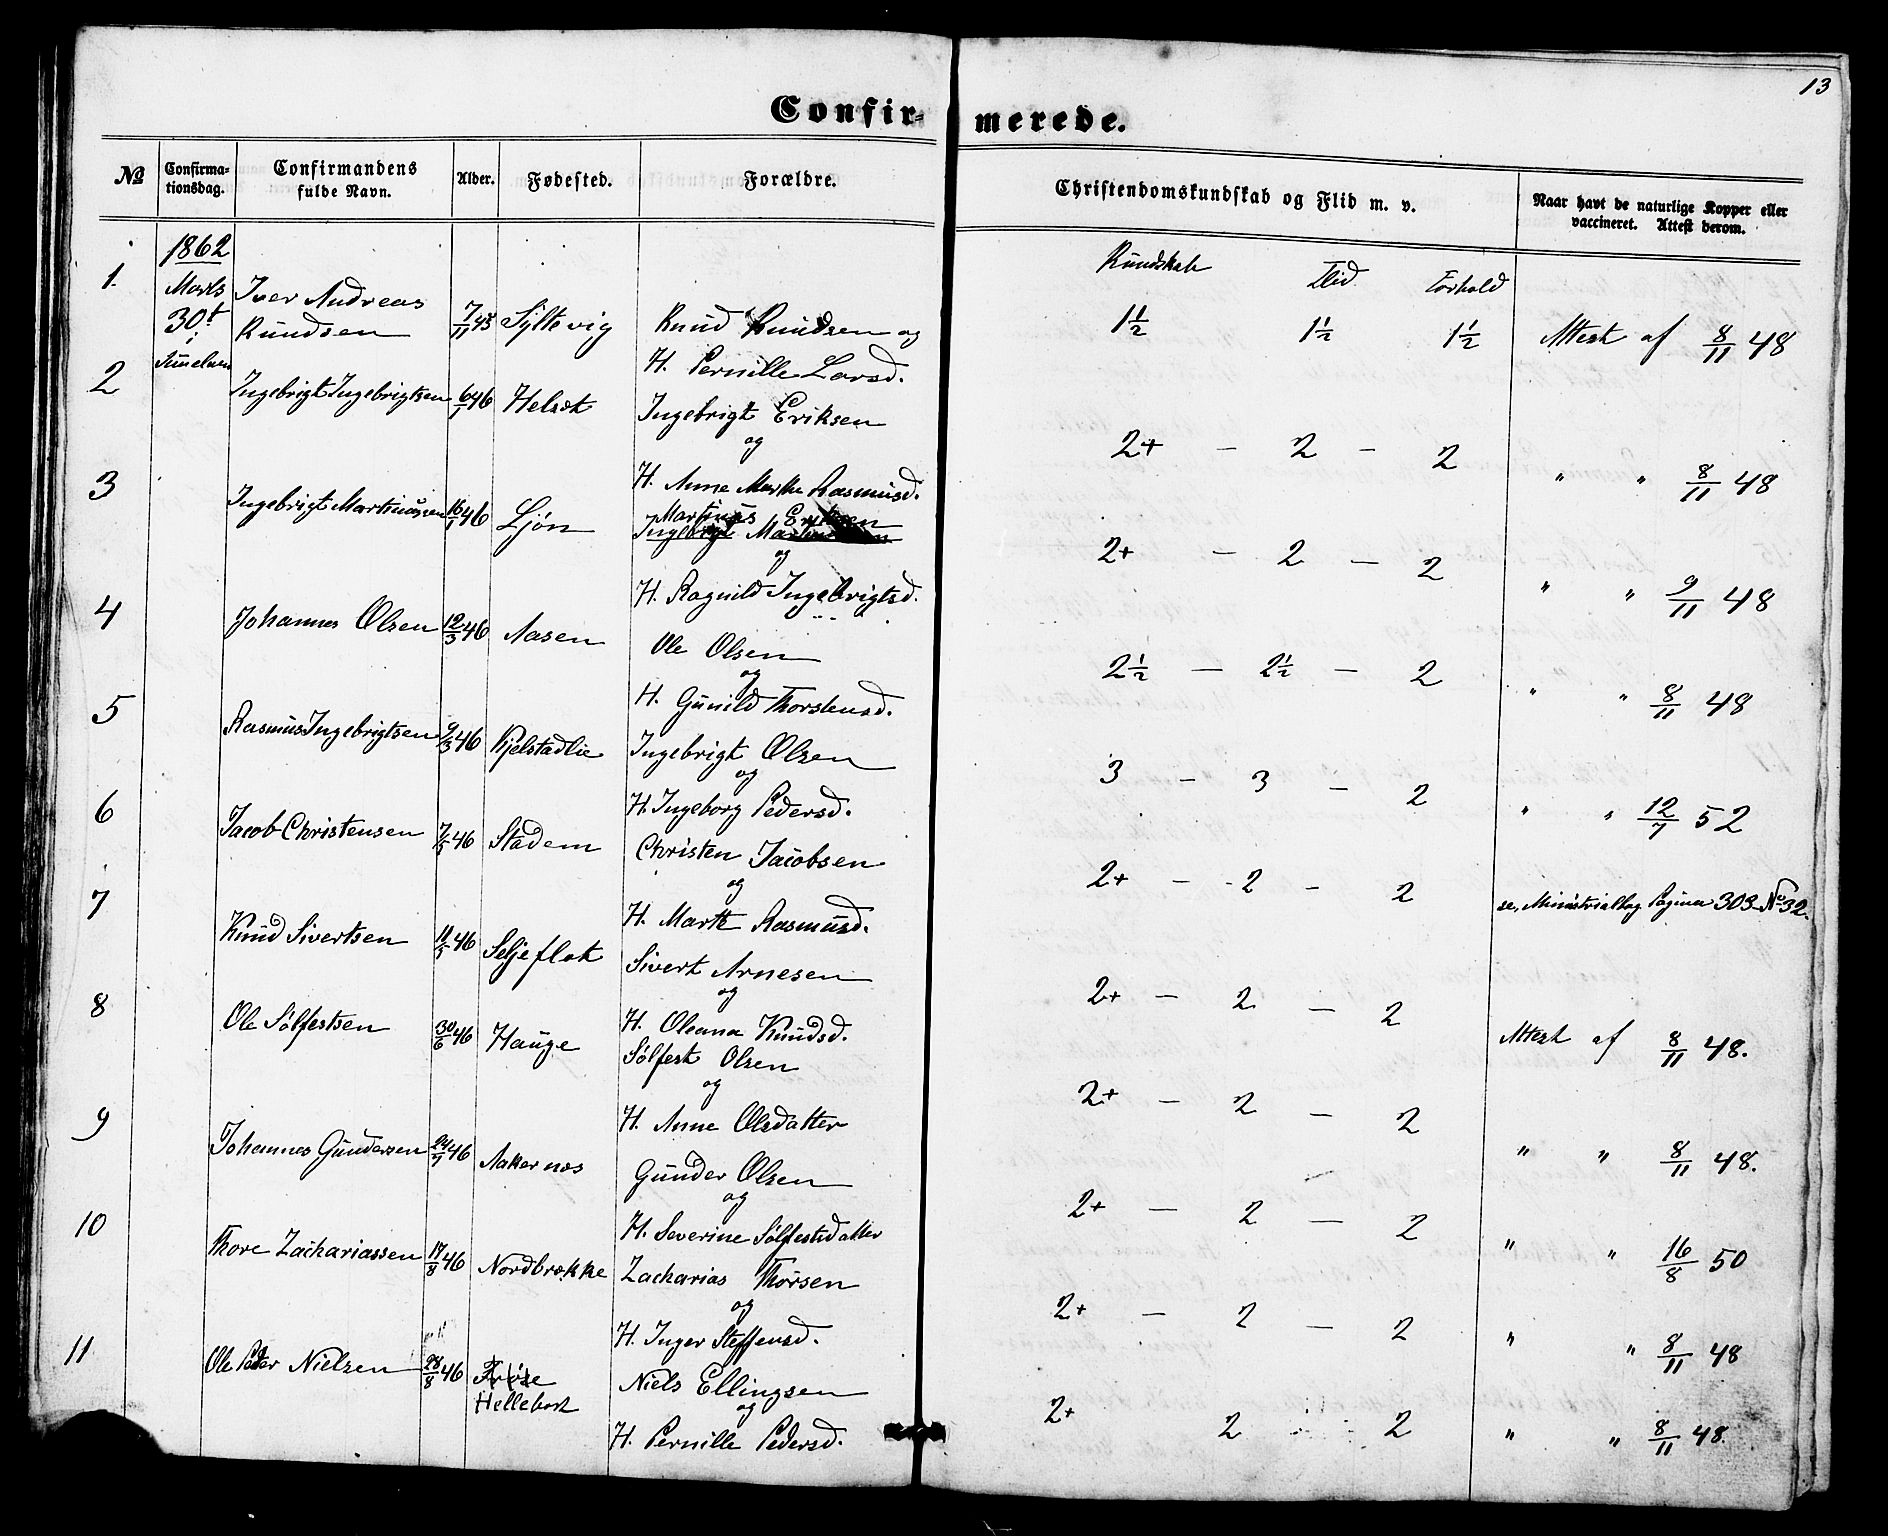 13
Confirmerede.
No Confirmationsdag. Confirmandens fulde Navn. Alder. Fødested. Forældre. Christendomskundskab og Flid m. v. Naar havt de naturlige Kopper eller vaccineret. Attest derom.
1862
Kundskab Flid Forhold
1. Marts 30t i Iver Andreas Knudsen 7/11 45 Syltevig Knud Knudsen og H. Pernille Larsd. 1½ 1½ 1½ Attest af 8/11 48
2 Ingebrigt Ingebrigtsen 6/1 46 Helset Ingebrigt Eriksen og H. Anne Marthe Rasmusd. 2+ – 2 – 2 " " 8/11 48
3 Ingebrigt Martinussen 16/1 46 Ljøn Martinus Eriksen Ingebrigt og H. Ragnild Ingebrigtsd. 2+ – 2 – 2 " " 9/11 48
4 Johannes Olsen 12/3 46 Aasen Ole Olsen og H. Gunild Thorstensd. 2½ – 2½ – 2 " " 8/11 48
5 Rasmus Ingebrigtsen 9/3 46 Kjelstadlie Ingebrigt Olsen og H. Ingeborg Pedersd. 3 – 3 – 2 " " 12/7 52
6 Jacob Christensen 7/5 46 Stadem Christen Jacobsen og H. Marthe Rasmusd. 2+ – 2 – 2 se, Ministrialbog Pagina 303 No 32.
7 Knud Sivertsen 11/5 46 Seljeflot Sivert Arnesen og H. Oleana Knudsd. 2+ – 2 – 2 Attest af 8/11 48.
8 Ole Sølfestsen 30/6 46 Hauge Sølfest Olsen og H. Anne Olsdatter 2+ – 2 – 2 " " 8/11 48.
9 Johannes Gundersen 24/7 46 Aakernes Gunder Olsen og H. Severine Sølfestdatter 2+ – 2 – 2 " " 16/8 50
10 Thore Zachariassen 17/8 46 Nordbrække Zacharias Thorsen og H. Inger Steffensd. 2+ – 2 – 2 " " 8/11 48
11 Ole Peder Nielsen 28/8 46 Hellebost Niels Ellingsen og H. Pernille Pedersd. 2+ 2 2 " " 8/11 48